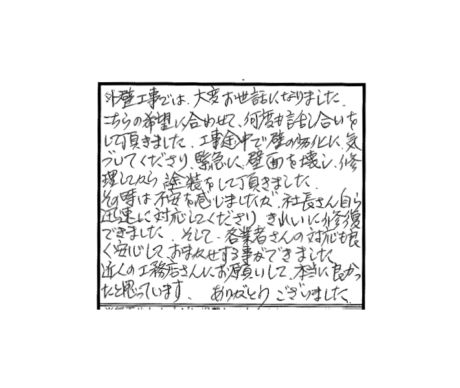 外壁工事では、大変お世話になりました。
こちらの希望に合わせて、何度も話し合いを
して頂きました。工事途中で壁の劣化に、気
づいてくださり、緊急に、壁面を壊し、修
理してから塗装をして頂きました。
その時は不安を感じましたが、社長さん自ら
迅速に対応してくださり きれいに修復
できました。そして、各業者さんの対応も良
く安心しておまかせする事ができました。
近くの工務店さんにお願いして、本当に良かっ
たと思っています。 ありがとう ございました。